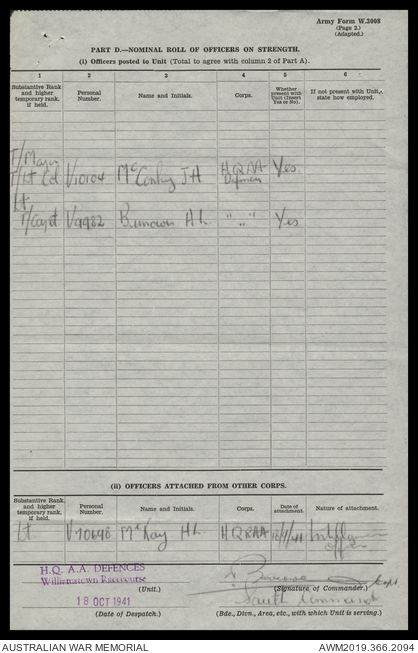 Army Form W.3008
(Page 2.)
(Adapted.)
PART D.—NOMINAL ROLL OF OFFICERS ON STRENGTH.
(i) Officers posted to Unit (Total to agree with column 2 of Part A).
1 2 3 4 5 6
Substantive Rank and higher temporary rank, if held. Personal Number. Name and Initials. Corps. Whether present with Unit (Insert Yes or No). If not present with Unit, state how employed.
T/Major
T/Lt Col V10104 McConley JH HQ AA Defences Yes
Lt
T/Capt V9982 H L " " Yes
(ii) OFFICERS ATTACHED FROM OTHER CORPS.
Substantive Rank and higher temporary rank, if held. Personal Number. Name and Initials. Corps. Date of attachment. Nature of attachment.
Lt V70648 McKay HL HQRAA /41 Intelligence Officer
H.Q. A.A. DEFENCES
Williamstown Racecourse
(Unit.)
18 OCT 1941
(Date of Despatch.)
Capt
(Signature of Commander.)
South Command
(Bde., Divn., Area, etc., with which Unit is serving.)
AUSTRALIAN WAR MEMORIAL
AWM2019.366.2094